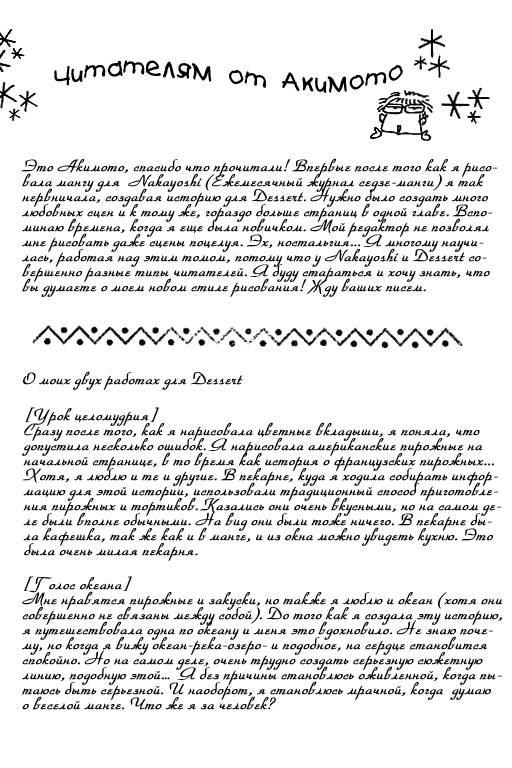 Читателям от Акимото
Это Акимото, спасибо что прочитали! Впервые после того как я рисо-
вала мангу для Nakayoshi (Ежемесячный журнал седзе-манги) я так
нервничала, создавая историю для Dessert. Нужно было создать много
любовных сцен и к тому же, гораздо больше страниц в одной главе. Вспо-
минаю времена, когда я еще была новичком. Мой редактор не позволял
мне рисовать даже сцены поцелуя. Эх, ностальгия... Я многому научи-
лась, работая над этим томом, потому что у Nakayoshi и Dessert со-
вершенно разные типы читателей. Я буду стараться и хочу знать, что
вы думаете о моем новом стиле рисования! Жду ваших писем.
О моих двух работах для Dessert
[Урок целомудрия]
Сразу после того, как я нарисовала цветные вкладыши, я поняла, что
допустила несколько ошибок. Я нарисовала американские пирожные на
начальной странице, в то время как история о французских пирожных...
Хотя, я люблю и те и другие. В пекарне, куда я ходила собирать инфор-
мацию для этой истории, использовали традиционный способ приготовле-
ния пирожных и тортиков. Казались они очень вкусными, но на самом де-
ле были вполне обычными. На вид они были тоже ничего. В пекарне бы-
ла кафешка, так же как и в манге, и из окна можно увидеть кухню. Это
была очень милая пекарня.
[Голос океана]
Мне нравятся пирожные и закуски, но также я люблю и океан (хотя они
совершенно не связаны между собой). До того как я создала эту историю,
я путешествовала одна по океану и меня это вдохновило. Не знаю поче-
му, но когда я вижу океан-река-озеро- и подобное, на сердце становится
спокойно. Но на самом деле, очень трудно создать серьезную сюжетную
линию, подобную этой... Я без причины становлюсь оживленной, когда пы-
таюсь быть серьезной. И наоборот, я становлюсь мрачной, когда думаю
о веселой манге. Что же я за человек?